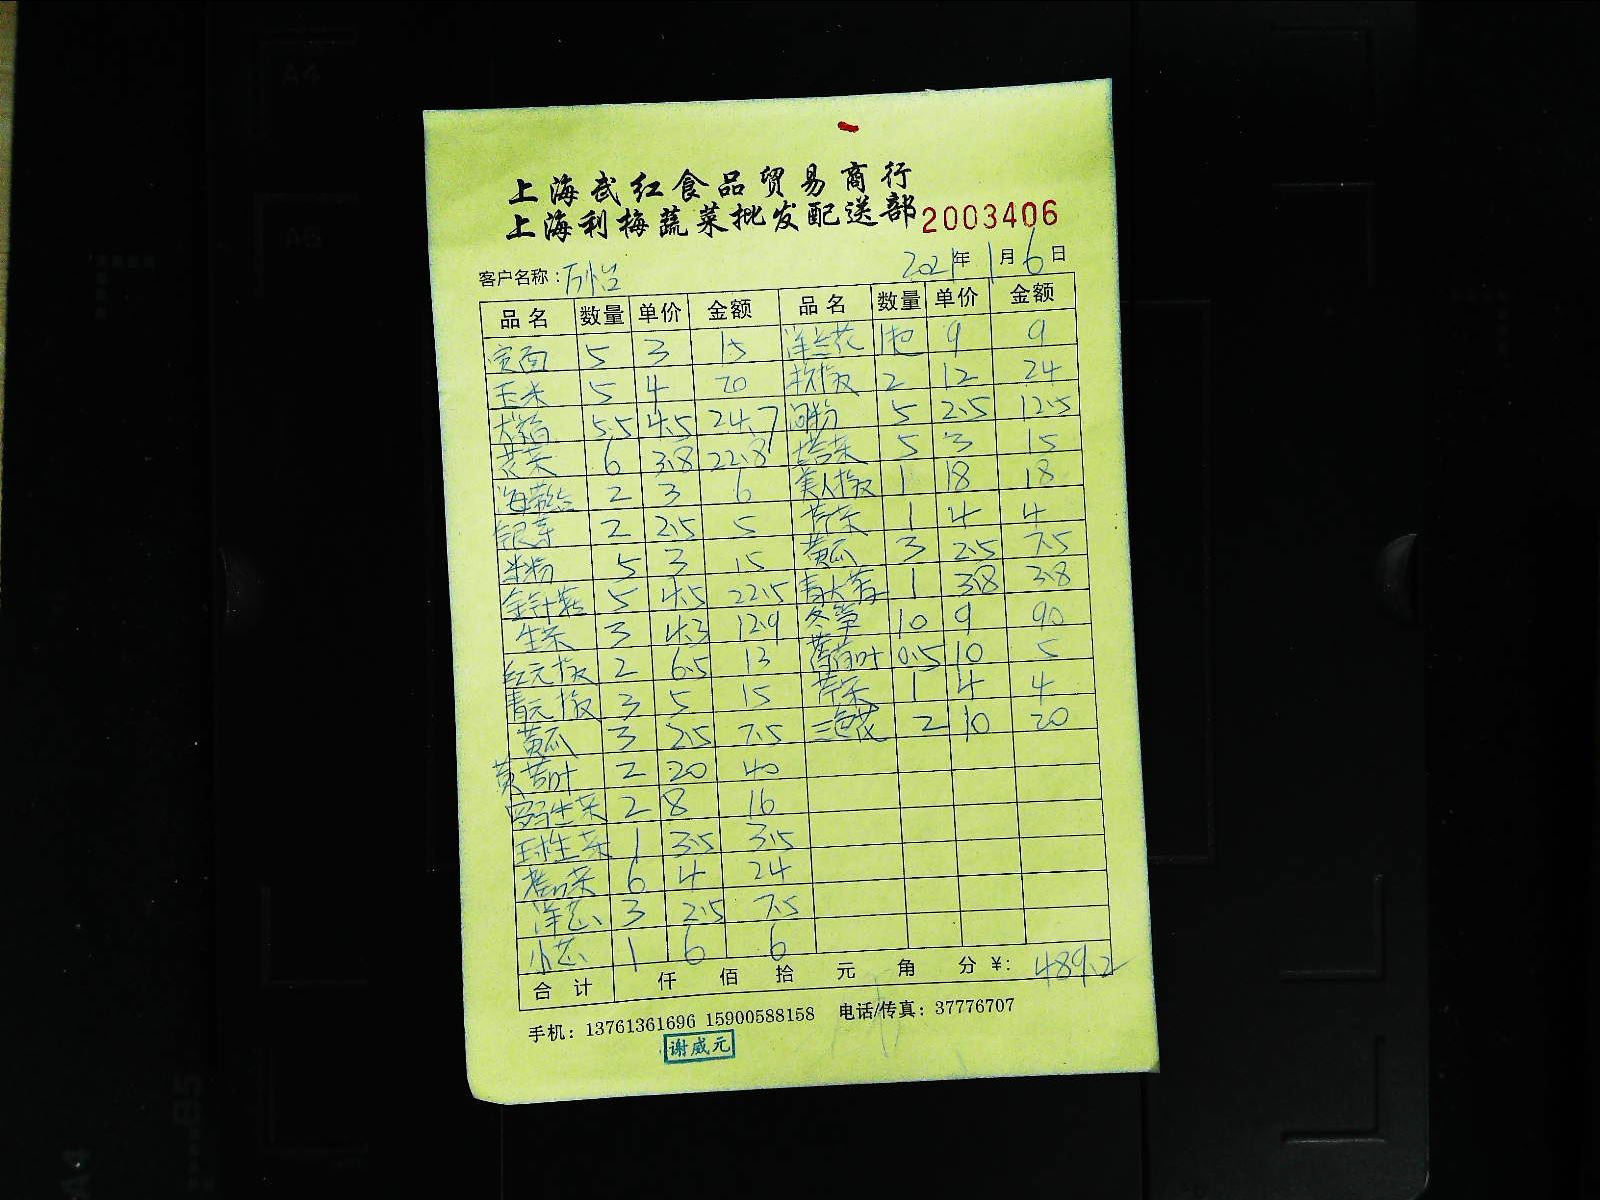 上海武红食品贸易商行
上海利梅蔬菜批发配送部 2003406
客户名称: 2021年1月6日
品名 数量 单价 金额 品名 数量 单价 金额
宽面 5 3 15 洋兰花 1把 9 9
玉米 5 4 20 杭椒 2 12 24
5.5 4.5 24.7 河粉 5 2.5 12.5
6 3.8 22.8 塔菜 5 3 15
海带结 2 3 6 美人椒 1 18 18
银芽 2 2.5 5 苦菜 1 4 4
米粉 5 3 15 黄瓜 3 2.5 7.5
金针菇 5 4.5 22.5 青大蒜 1 3.8 3.8
生菜 3 4.3 12.9 冬笋 10 9 90
红元椒 2 6.5 13 薄荷叶 0.5 10 5
青元椒 3 5 15 苦菜 1 4 4
黄瓜 3 2.5 7.5 三色花 2 10 20
2 20 40
罗马生菜 2 8 16
球生菜 1 3.5 3.5
6 4 24
洋芯 3 2.5 7.5
小芯 1 6 6
合计 仟 佰 拾 元 角 分 ¥: 489.2
手机: 13761361696 15900588158 电话/传真: 37776707
谢威元